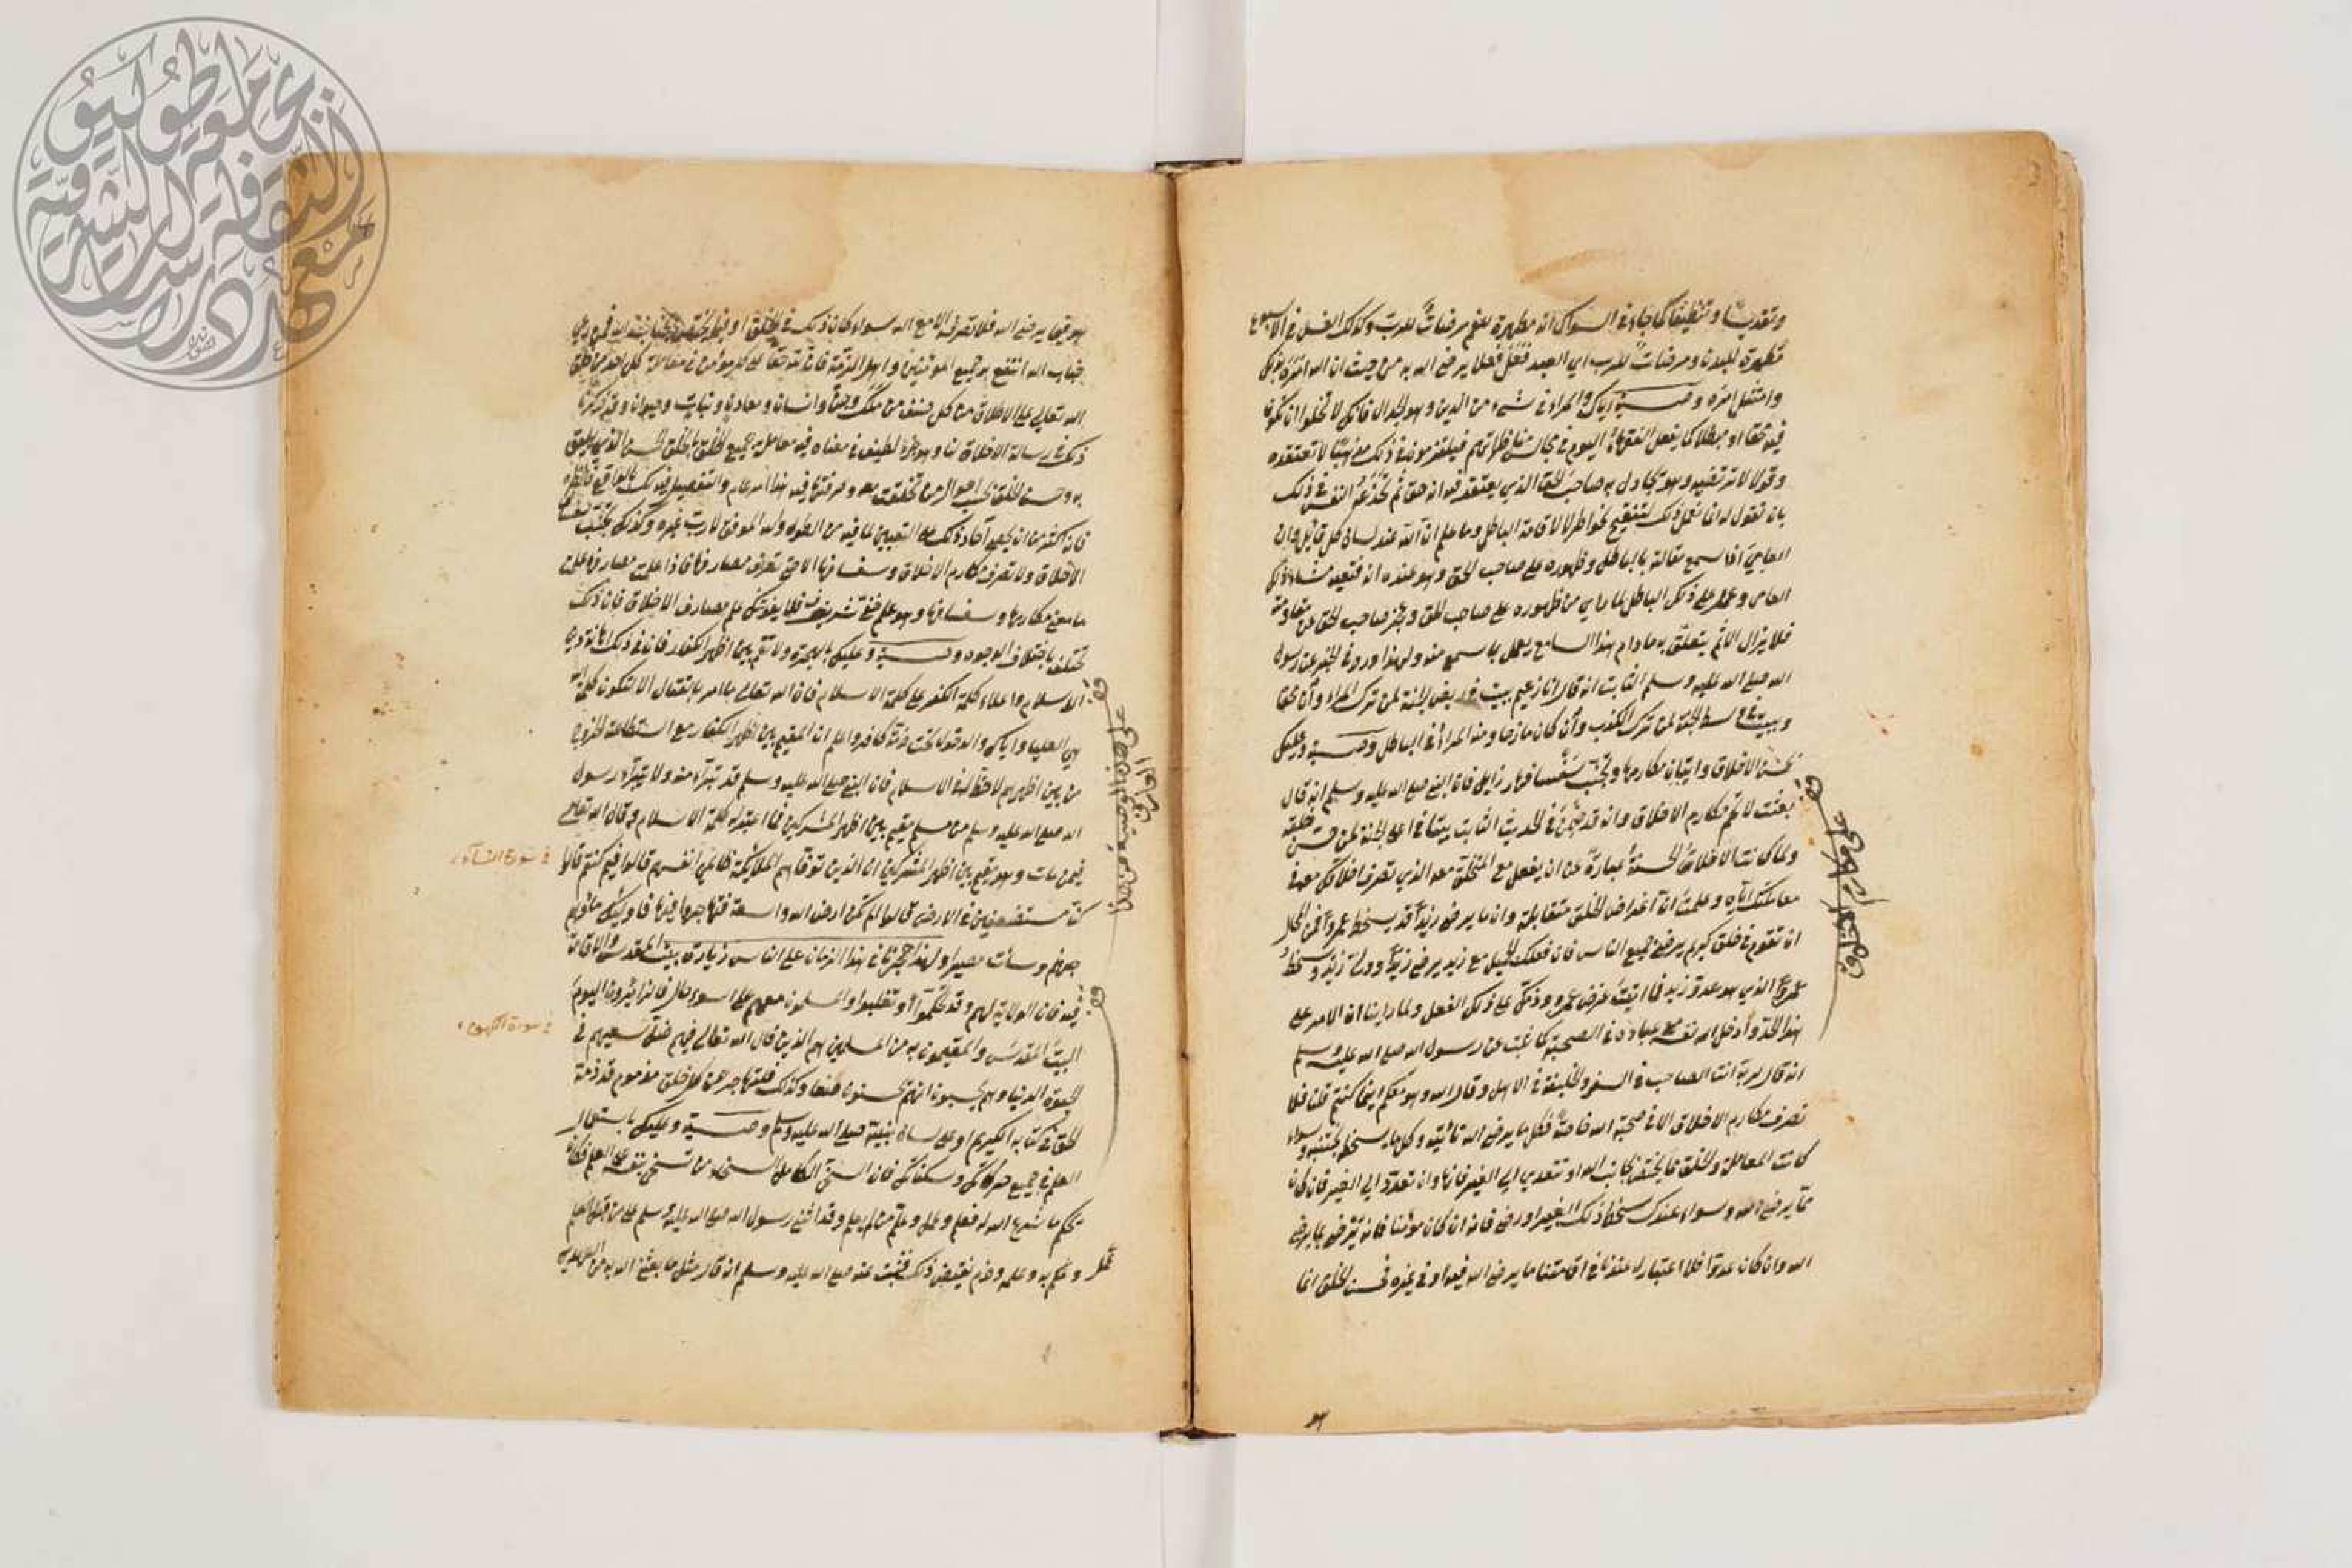 وتقديسًا وتنظيفًا كما جاء في السواك انه مطهرة للفم مرضاة للرب وكذلك الغسل في الاسبوع
تطهرة للبدن ومرضات للرب اي العبد فعل فعلا يرضي الله به من حيث ان الله امره بذلك
وامتثل امره وصية اياك والمراء في شيء من الدين وهو الجدال فانك لا تخلوا ان تكون
فيه محقا او مبطلا كما يفعل الفقهاء اليوم في مجالس مناظراتهم فيلتزمون في ذلك مذهبًا لا تعتقده
وقولا لا ترتضيه وهو تجادل به صاحب الحق الذي يعتقد فيه انه حق ثم تخدعه النفس في ذلك
بان تقول له انا نفعل ذلك لتنقيح الخواطر لا لاقامة الباطل وما علم ان الله عند لسان كل قائل وان
العامي اذا سمع مقالته بالباطل وظهوره على صاحب الحق وهو عنده انه فقيه
العامي وعمل على ذلك الباطل لما راي من ظهوره على صاحب الحق وعجز صاحب الحق عن مقاومته
فلا يزال الاثم يتعلق به ما دام هذا السامع يعمل بما سمع منه ولهذا ورد في الخبر عن رسول
الله صلى الله عليه وسلم الثابت انه قال انا زعيم ببيت في ربض الجنة لمن ترك المراء وان كان محقا
وببيت في وسط الجنة لمن ترك الكذب وان كان مازحا ومنه المراء في الباطل وصية وعليك
بحسن الاخلاق واتيان مكارمها وتجنب سفسافها فان النبي صلى الله عليه وسلم انه قال
بعثت لاتمم مكارم الاخلاق وانه قد ضمن في الحديث الثابت بيتا في اعلى الجنة لمن حسن خلقه
ولما كانت الاخلاق الحسنة عبارة عن ان يفعل مع المتخلق معه الذي تصرف اخلاقك معه في
معاملتك اياه وعلمت ان اغراض الخلق متقابلة وان ما يرضي زيدًا قد يسخط عمروًا فمن المحال
ان تقوم في خلق كريم يرضي جميع الناس فان فعلك الجميل مع زيد يرضي زيدًا
عمرو الذي هو عدو زيد فما اتيت غرض عمرو وذمك على ذلك الفعل ولما راينا ان الامر على
هذا الحد وادخل الله نفسه مع عباده في الصحبة كما ثبت عن رسول الله صلى الله عليه وسلم
انه قال لربه انت الصاحب في السفر والخليفة في الاهل وقال الله وهو معكم اينما كنتم قلنا فلا
تصرف مكارم الاخلاق الا في صحبة الله خاصة فكل ما يرضي الله تأتيه وكل ما يسخط الله تجتنبه وسواء
كانت المعاملة والخلق مما يختص بجانب الله او تتعدي الى الغير فانها وان تعدت الي الغير فان كان
مما يرضي الله وسواء عندك سخط ذلك الغير او رضي فانه ان كان مؤمنا فانه يرضى بما يرضي
الله وان كان عدوًا فلا اعتبار له عندنا ما يرضي الله فيه او في غيره فحسن الخلق انما
هو فيما يرضي الله فلا تصرفه الا مع الله سواء كان ذلك في الخلق او فيما يختص بجناب الله فمن راعى
جناب الله انتفع به جميع المؤمنين واهل الذمة فان لله حقا على كل مؤمن في معاملة كل احد من خلق
الله تعالى على الاطلاق من كل صنف من ملك وجن وانسان ومعادن ونبات وحيوان وقد ذكرنا
ذلك في رسالة الاخلاق لنا وهو جزء لطيف في معناه فيه معاملة جميع الخلق بالخلق الحسن الذي يليق
به وحسن الخلق بحسب احوال من تخلقت معه وصرفتها فيه هذا امر عام والتفصيل فيه لك بالواقع فانظر
فانه اكثر من ان يحصى آحاد ذلك على التعيين لما فيه من الطول والله الموفق لا رب غيره وكذلك تجنب سفساف
الاخلاق ولا تعرف مكارم الاخلاق وسفسافها الا حتى تعرف مصارفها فاذا علمت مصارفها علمت
ما معنى مكارمها وسفسافها وهو علم خفي شريف فلا يفوتنك علم مصارف الاخلاق فان ذلك
تختلف باختلاف الوجوه وصية وعليك بالهجرة ولا تقم بين اظهر الكفار فان في ذلك اهانة دين
الاسلام واعلاء كلمة الكفر على كلمة الاسلام فان الله تعالى ما امر بالقتال الا لتكون كلمة الله
هي العليا واياك والدخول تحت ذمة كافر واعلم ان المقيم بين اظهر الكفار مع استطاعة الخروج
من بين اظهرهم لا حظ له في الاسلام فان النبي صلى الله عليه وسلم قد تبرأ منه ولا يتبرأ رسول
الله صلى الله عليه وسلم من مسلم يقيم بين اظهر المشركين فما اعتبر له كلمة الاسلام وقال الله تعالى
فيمن مات وهو يقيم بين اظهر المشركين ان الذين توفاهم الملائكة ظالمي انفسهم قالوا فيم كنتم قالوا
في سورة النساء
كنا مستضعفين في الارض قالوا الم تكن ارض الله واسعة فتهاجروا فيها فاوليك مأواهم
جهنم وسائت مصيرا ولهذا حجرنا في هذا الزمان على الناس زيارة بيت المقدس والاقامة
فيه فان الولاية لهم وقد تحكموا او تغلبوا والمسلمون معهم على اسوء حال فالزائرون اليوم
في سورة الكهف
البيت المقدس والمقيمون به من المسلمين هم الذين قال الله تعالى فيهم ضل سعيهم في
الحيوة الدنيا وهم يحسبون انهم يحسنون صنعا وكذلك فلتهاجر عن كل خلق مذموم قد ذمه
الحق في كتابه الكريم او على لسان نبيه صلى الله عليه وسلم وصية وعليك باستعمال
العلم في جميع حركاتك وسكناتك فان السخي الكامل السخاء من تسخى بنفسه على العلم فكان
بحكم ما شرع الله له فعلم وعمل وعلم من لم يعلم وقد اثنى رسول الله صلى الله عليه وسلم على من قبل العلم
وعمل به وعلمه وذم نقيض ذلك فثبت عنه صلى الله عليه وسلم انه قال مثل ما بعثني الله به من الهدى